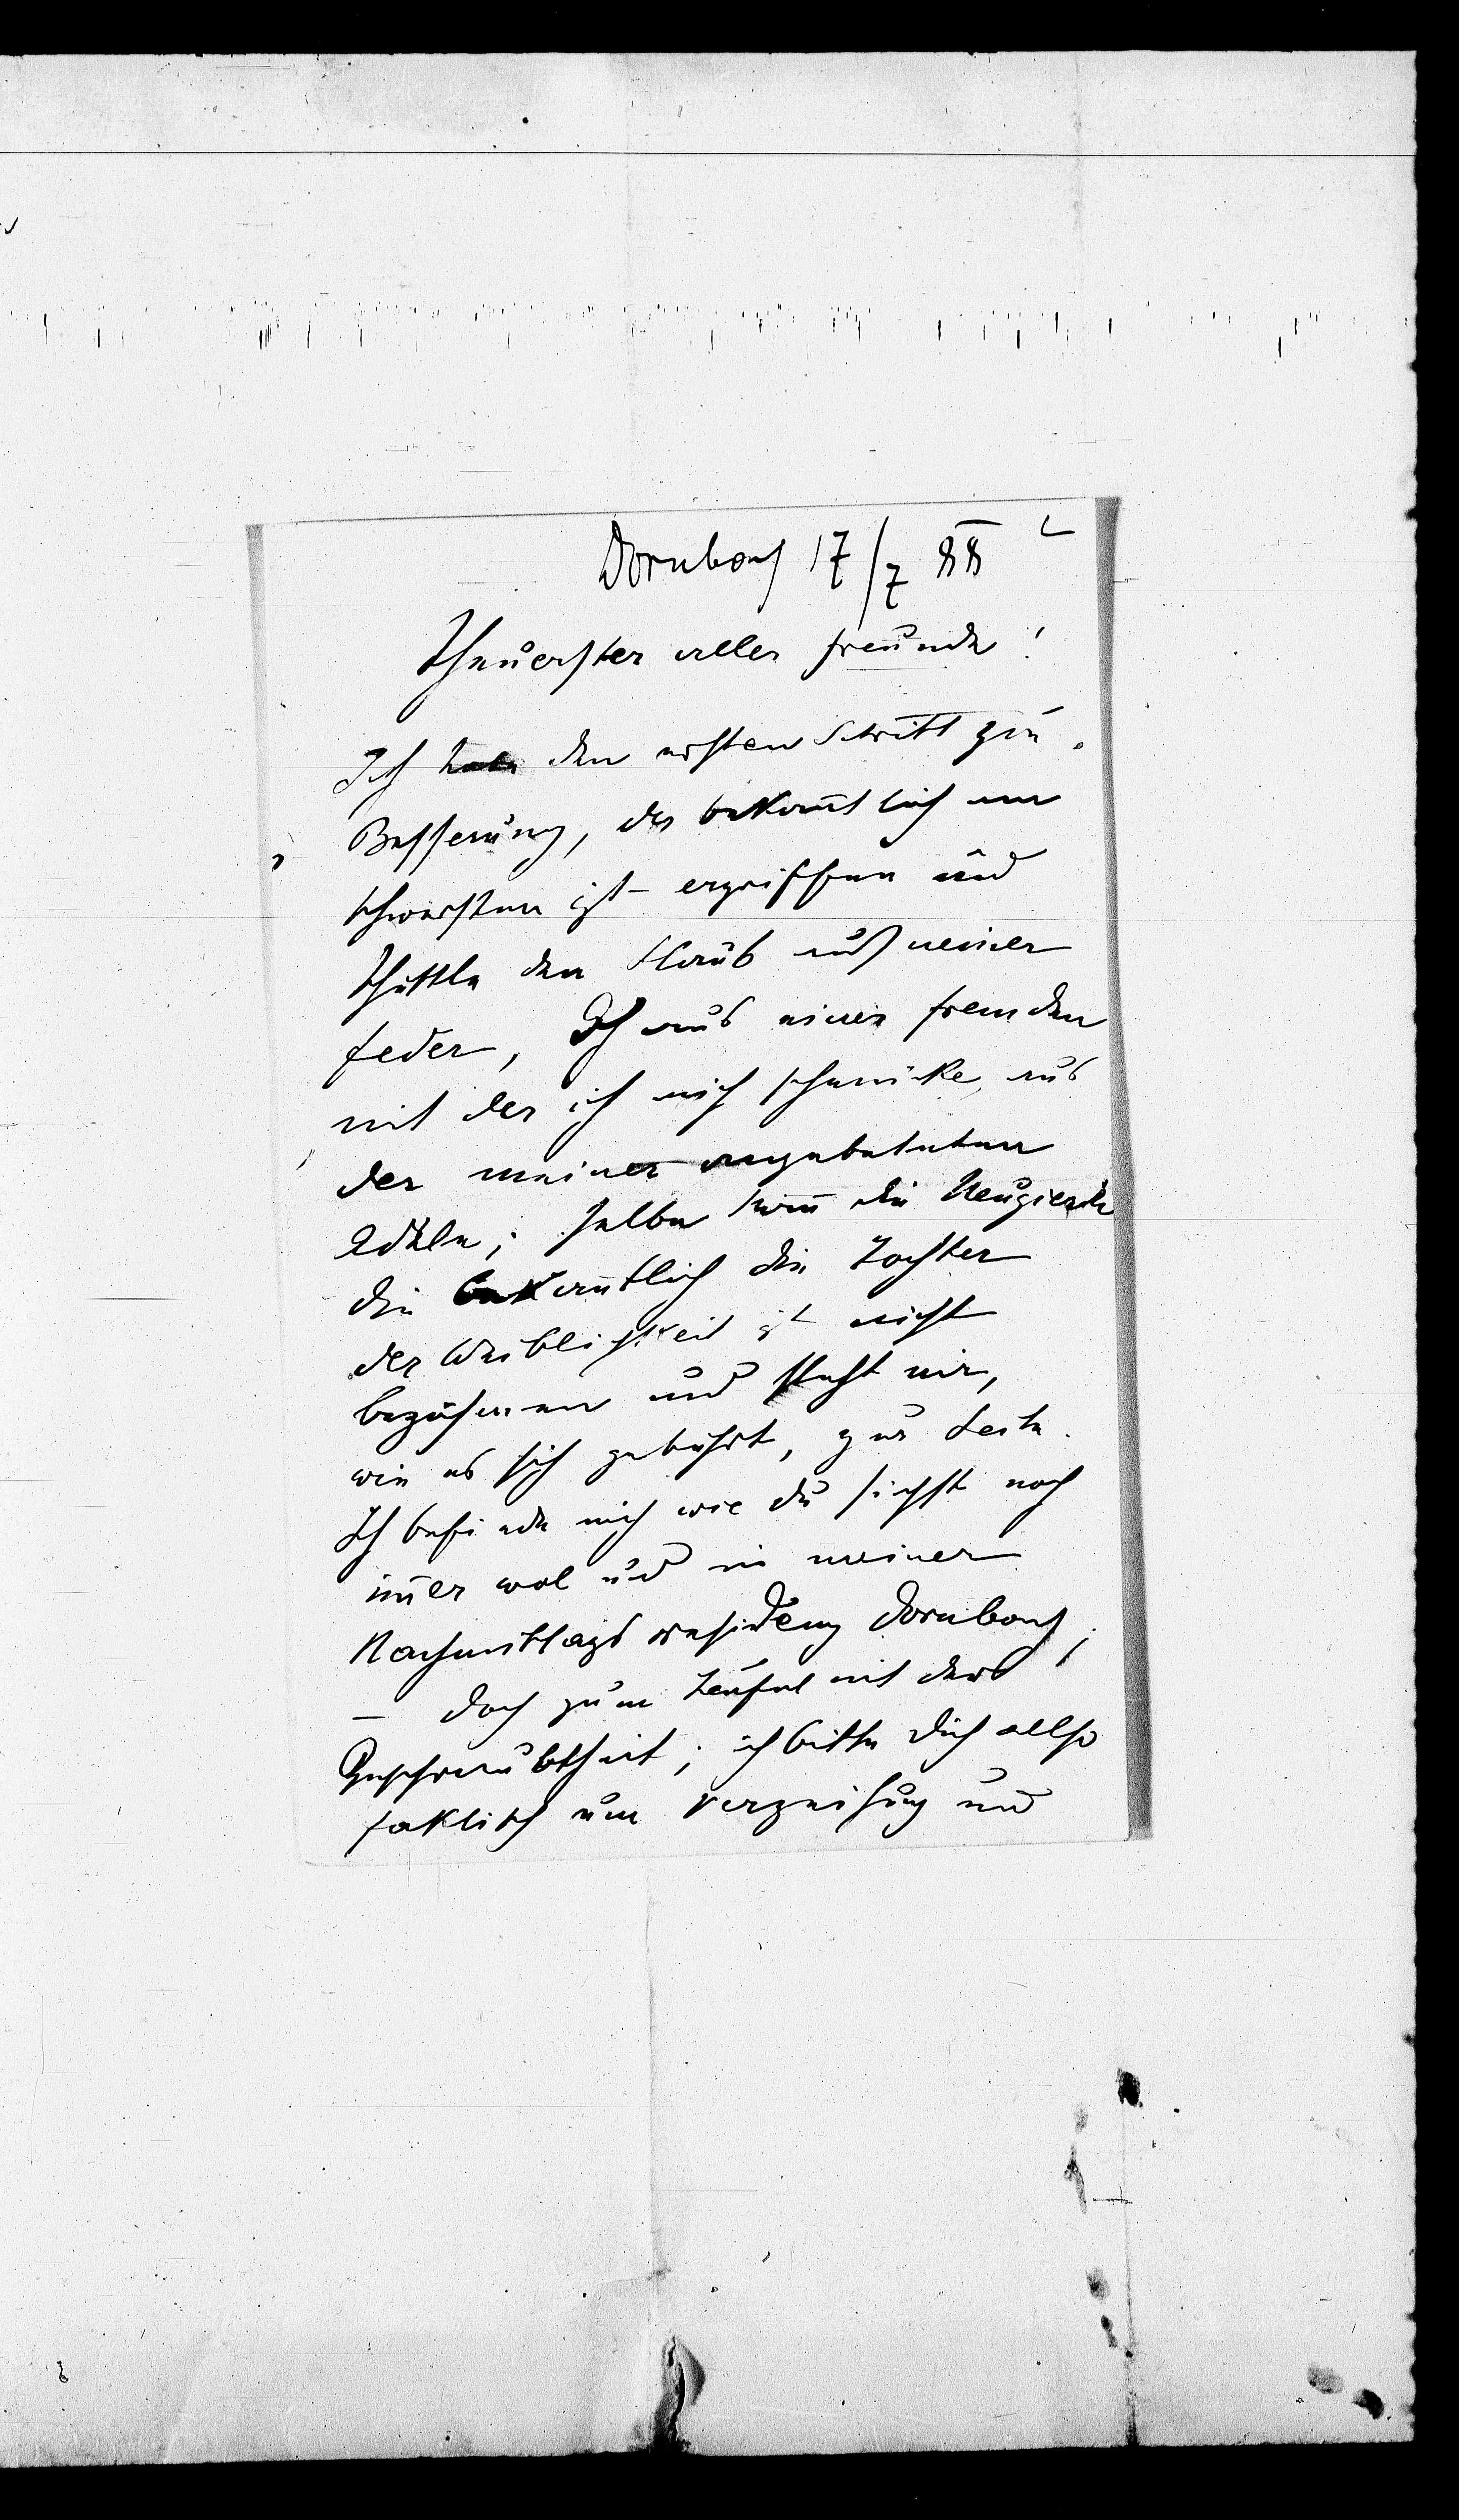 Dornbach 17/7 88
Theuerster aller Freunde!
Ich habe den ersten Schritt zur
Besserung, der bekanntlich am
schwersten ist ergriffen und
schüttle den Staub aus meiner
Feder, Ich aus einer fremden
mit der ich mich schmücke, aus
der meiner angebeteten
Adele; selbe kann die Neugierde
die bekanntlich die Tochter
der Weiblichkeit ist nicht
bezähmen und steht mir,
wie es sich gebührt, zur Seite.
Ich befinde mich wie du siehst noch
im̄er wol und in meiner
Nachmittags residenz Dornbach;
– doch zum Teufel mit der
Geschraubtheit; ich bitte dich allso
faktisch um Verzeihung und